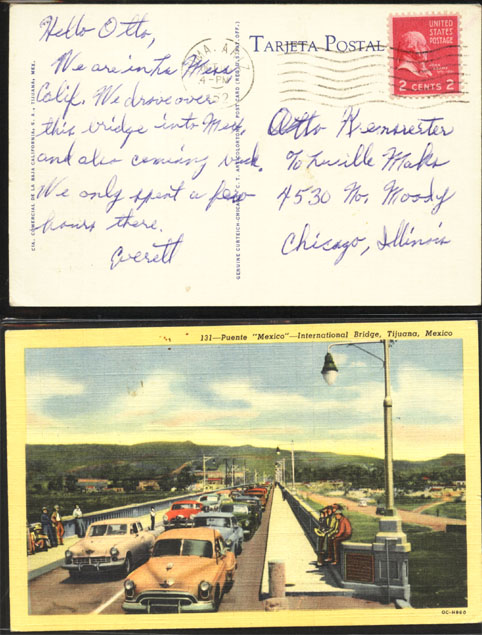 Hello Otto,
We are in La Mesa
Calif. We drove over
this bridge into Mex.
and also coming back.
We only spent a few
hours there.
Everett
CIA. COMERCIAL DE LA BAJA CALIFORNIA, S. A., TIJUANA, MEX.
GENUINE CURTEICH-CHICAGO "C. T. ART-COLORTONE" POST CARD (REG. U. S. PAT. OFF.)
TARJETA POSTAL
4-PM
UNITED
STATES
POSTAGE
2 CENTS 2
Otto
4530 No. Moody
Chicago, Illinois
131—Puente "Mexico"—International Bridge, Tijuana, Mexico
OC-H860